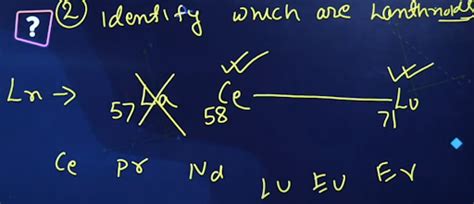 ? ② Identify which are Lanthnoids
Ln → 57La 58Ce 71Lu
Ce Pr Nd Lu Eu Er